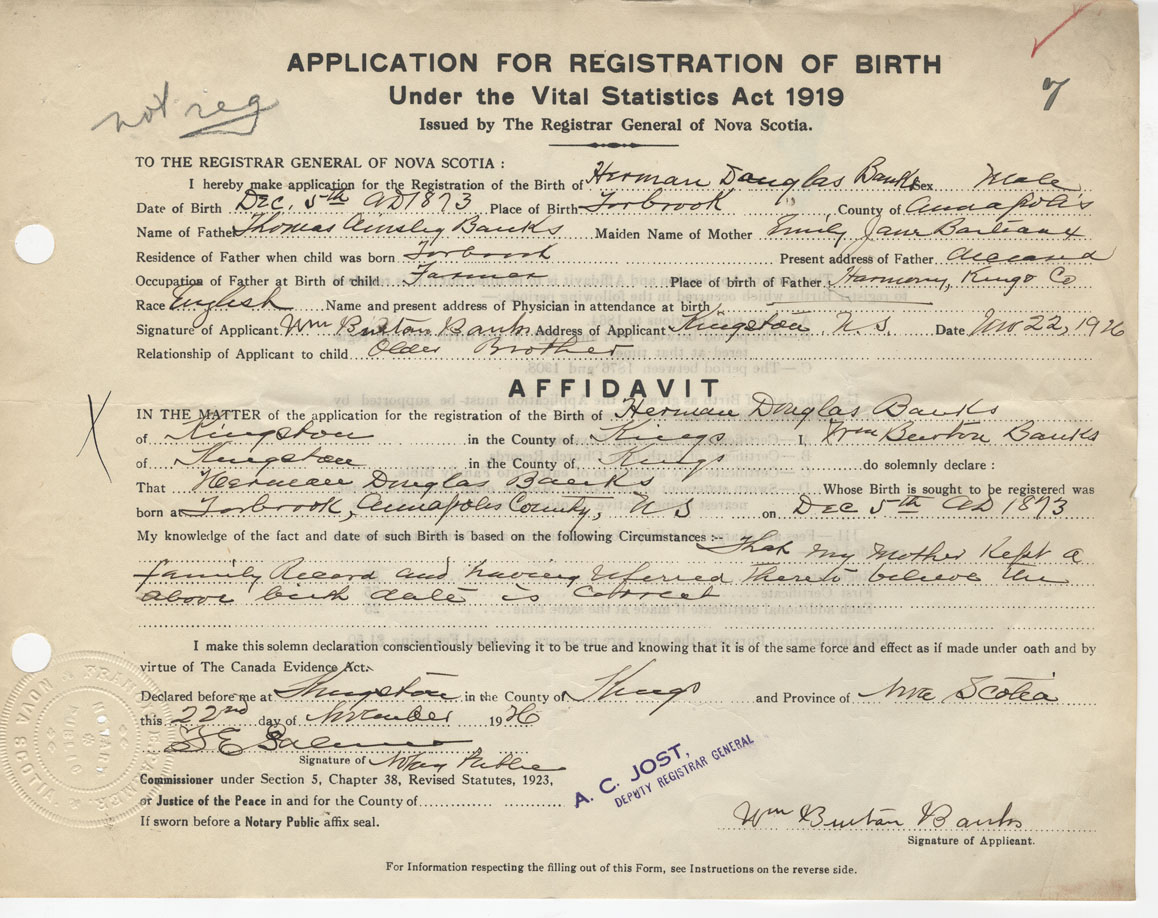 APPLICATION FOR REGISTRATION OF BIRTH
Under the Vital Statistics Act 1919
Issued by The Registrar General of Nova Scotia.
not reg
7
TO THE REGISTRAR GENERAL OF NOVA SCOTIA :
I hereby make application for the Registration of the Birth of Herman Douglas Banks Sex Male
Date of Birth Dec. 5th AD 1873 Place of Birth Torbrook , County of Annapolis
Name of Father Thomas Ainsley Banks Maiden Name of Mother Emily Jane Barteaux
Residence of Father when child was born Torbrook Present address of Father deceased
Occupation of Father at Birth of child. Farmer Place of birth of Father. Harmony, Kings Co
Race English Name and present address of Physician in attendance at birth
Signature of Applicant Wm Burton Banks Address of Applicant Kingston N.S. Date Nov 22, 1926
Relationship of Applicant to child Older Brother
AFFIDAVIT
X
IN THE MATTER of the application for the registration of the Birth of Herman Douglas Banks
of Kingston in the County of Kings I, Wm Burton Banks
of Kingston in the County of Kings do solemnly declare :
That Herman Douglas Banks Whose Birth is sought to be registered was
born at Torbrook, Annapolis County, N S on Dec 5th AD 1873
My knowledge of the fact and date of such Birth is based on the following Circumstances :- That my Mother Kept a
family Record and having referred thereto believe the
above birth date is correct
I make this solemn declaration conscientiously believing it to be true and knowing that it is of the same force and effect as if made under oath and by
virtue of The Canada Evidence Act.
Declared before me at Kingston in the County of Kings and Province of Nova Scotia
this 22nd day of November 1926
Signature of Notary Public
Commissioner under Section 5, Chapter 38, Revised Statutes, 1923,
or Justice of the Peace in and for the County of
If sworn before a Notary Public affix seal.
A. C. JOST,
DEPUTY REGISTRAR GENERAL
Wm Burton Banks
Signature of Applicant.
For Information respecting the filling out of this Form, see Instructions on the reverse side.